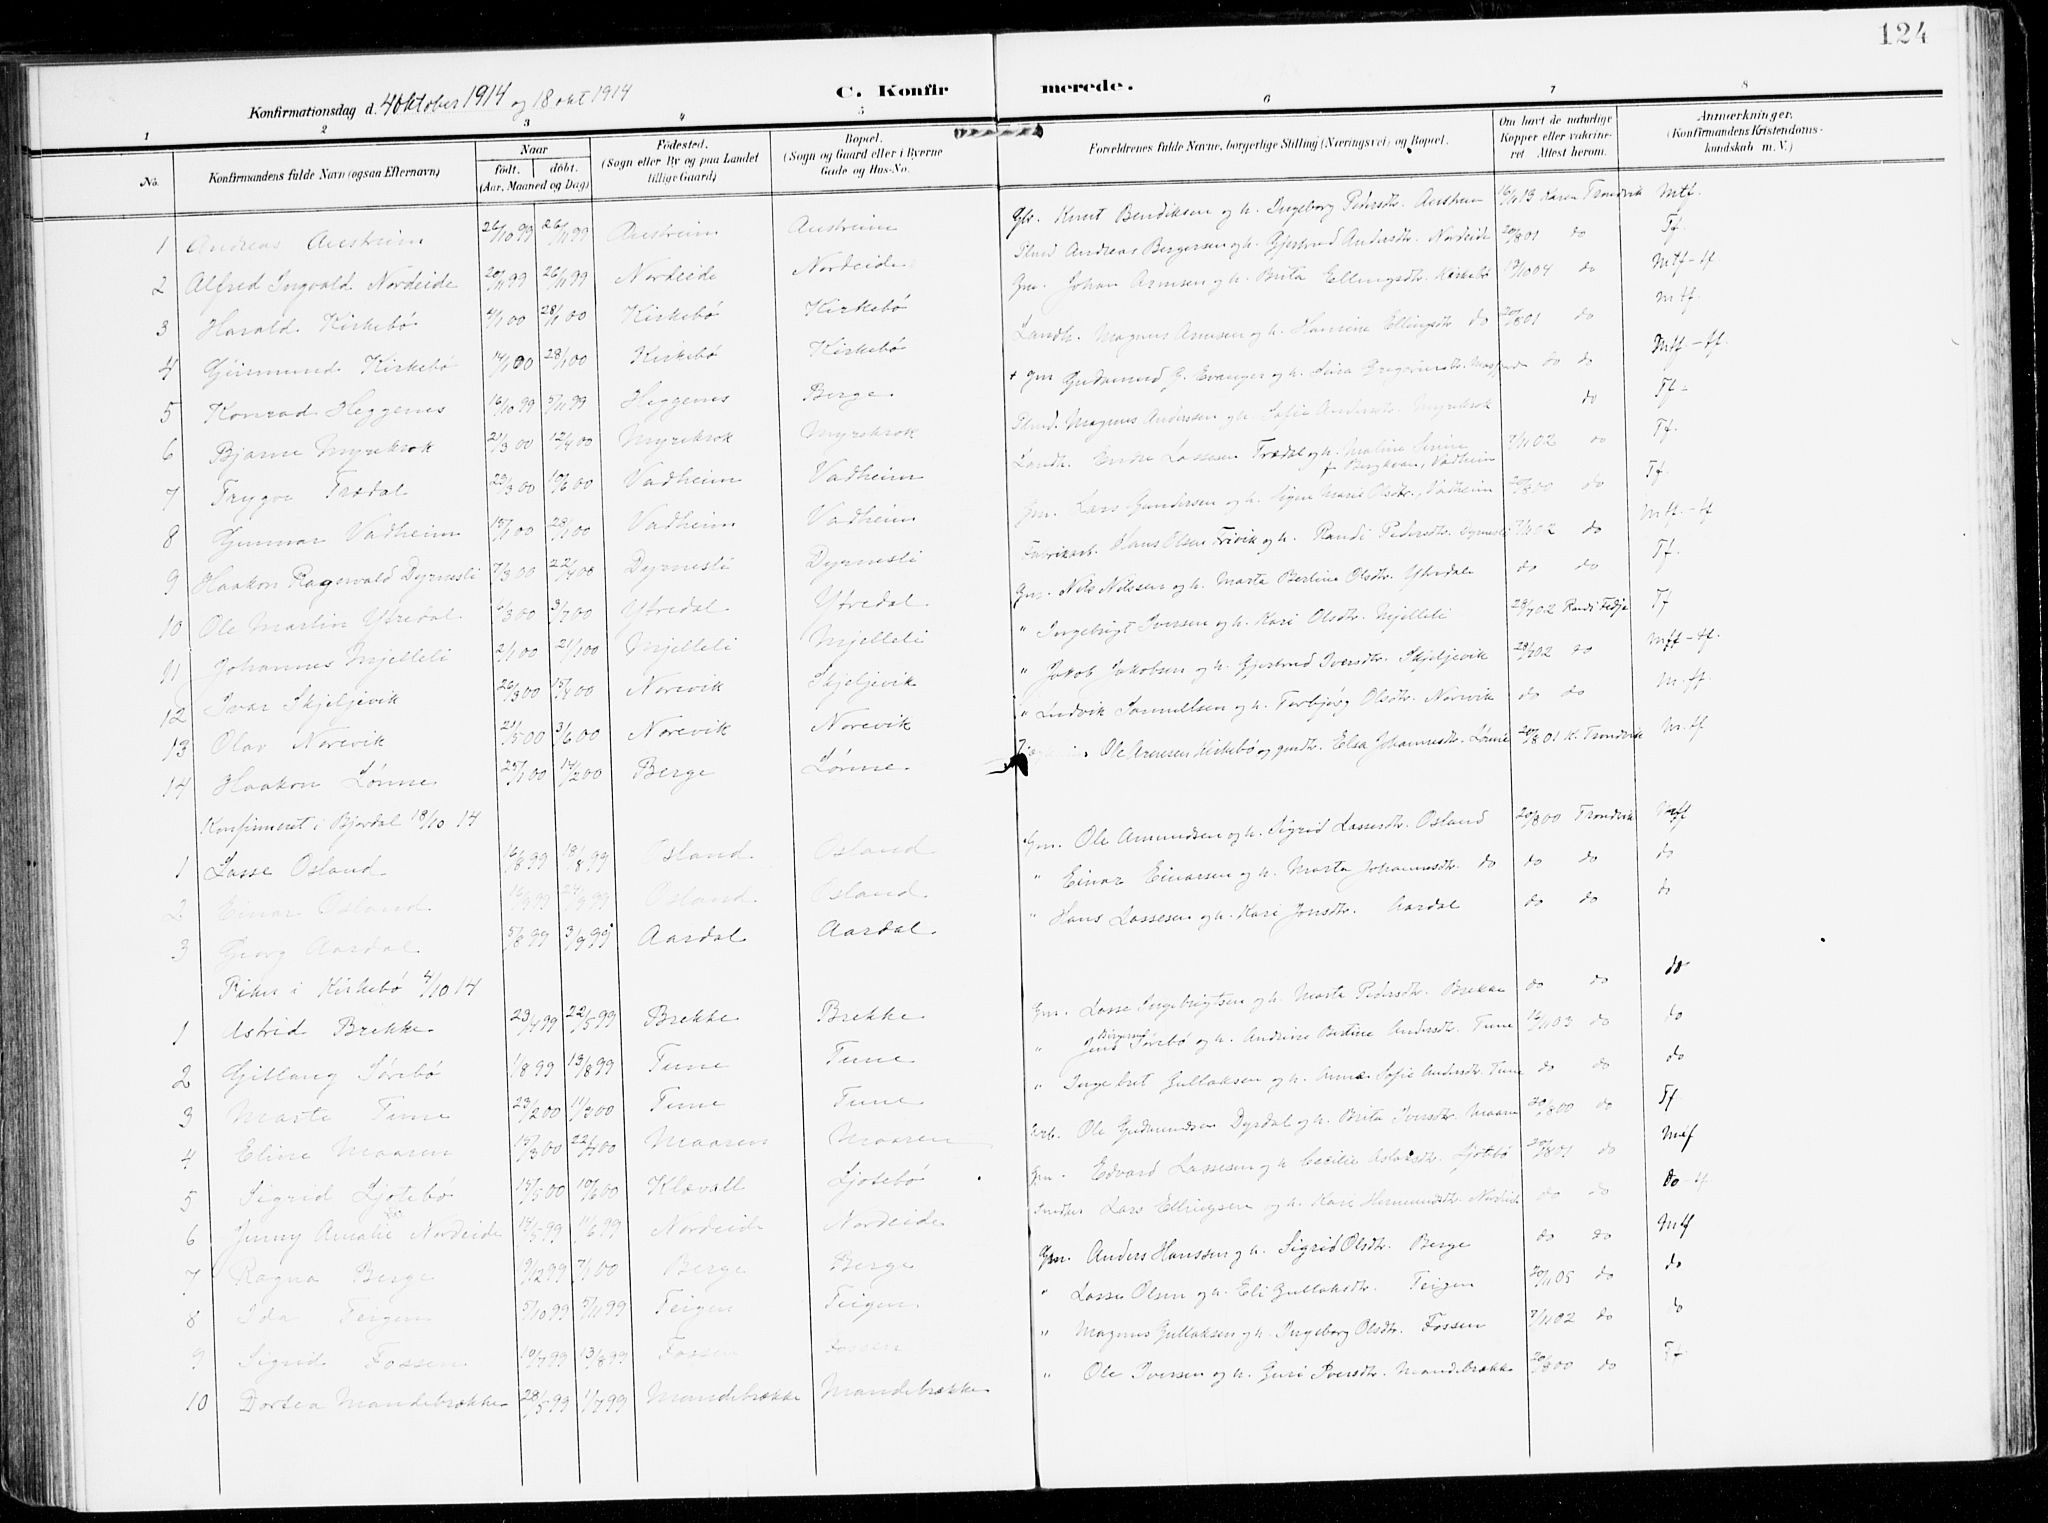 124
Konfirmationsdag d. 4 oktober 1914 og 18 okt 1914
C. Konfirmerede.
1 2 3 4 5 6 7 8
No. Konfirmandens fulde Navn (ogsaa Efternavn) Naar født. døbt. (Aar, Maaned og Dag) Fødested. (Sogn eller By og paa Landet tillige Gaard) Bopæl. (Sogn og Gaard eller i Byerne Gade og Hus-No. Forældrenes fulde Navne, borgerlige Stilling (Næringsvei) og Bopæl. Om havt de naturlige Kopper eller vakcineret Attest herom. Anmærkninger. (Konfirmandens Kristendomskundskab m. V.)
1 Andreas Austreim 26/10 99 26/11 99 Austreim Austreim Gbr. Knut Bendiksen og h. Ingeborg Pedersdtr. Austreim 16/1 13 Karen Trondvik Mtf.
2 Alfred Ingvald Nordeide 20/11 99 26/11 99 Nordeide Nordeide Plmd Andreas Bergersen og h. Gjertrud Andersdtr. Nordeide 20/8 01 do Tf.
3 Harald Kirkebø 4/1 00 28/1 00 Kirkebø Kirkebø Gm. Johan Arnesen og h. Brita Ellingsdtr. Kirkebø 13/10 04 do Mtf-tf
4 Geirmund Kirkebø 14/1 00 28/1 00 Kirkebø Kirkebø Landh. Magnus Arnesen og h. Hanna Ellingsdtr do 20/8 01 do mtf.
5 Konrad Heggenes 16/10 99 5/11 99 Heggenes Berge + Gm Gudmund G. Evanger og h. do do Mtf-tf.
6 Bjarne Myrekrok 21/3 00 12/4 00 Myrekrok Myrekrok Plmd. Magnus Anderssen og h. Sofie Andersdtr. Myrekrok do Tf-
7 Trygve Trædal 29/3 00 10/6 00 Vadheim Vadheim Landh. Endre Lassesen Trædal og h. Maline Serine f. Bergkvam, Vadheim 7/11 02 do Tf.
8 Gunnar Vadheim 15/1 00 28/1 00 Vadheim Vadheim Gm. Lars Gundersen og h. Signe Marie Olsdtr, Vadheim 20/8 00 do Tf
9 Haakon Ragnvald Dyrnesli 7/3 00 22/4 00 Dyrnesli Dyrnesli Fabrikarb. Hans Olsen Trivik og h. Randi Pedersdtr. Dyrnesli 7/11 02 do Mtf.-tf
10 Ole Martin Ytredal 1/3 00 3/7 00 Ytredal Ytredal Gm. Nils Nilssen og h. Marta Berline Olsdtr. Ytredal do do Tf.
11 Johannes Mjelleli 2/1 00 21/1 00 Mjelleli Mjelleli " Ingebrigt Iversen og h. Kari Olsdtr. Mjelleli 28/7 02 Randi Fedje Tf
12 Ivar Skjeljevik 26/3 00 15/4 00 Norevik Skjeljevik " Jakob Jakobsen og h. Gjertrud Iversdtr. Skjeljevik 28/7 02 do Mtf-tf.
13 Olav Norevik 21/5 00 3/6 00 Norevik Norevik " Ludvik Samuelsen og h. Torbjørg Olsdtr. Norevik do do M.tf.
14 Haakon Lønne 25/1 00 14/2 00 Berge Lønne Ole Arnesen Kirkebø og Elsa Johannesdtr. Lønne 20/8 01 K. Trondvik M.tf
Konfirmeret i Bjordal 18/10 14
1 Lasse Osland 16/8 99 18/8 99 Osland Osland Gm. Ole Amundsen og h. Sigrid Lassesdtr. Osland 20/8 00 Trondvik Mtf
2 Einar Osland 16/9 99 24/9 99 Osland Osland " Einar Einarsen og h. Marta Johannesdtr. do do do do
3 Georg Aardal 5/8 99 3/9 99 Aardal Aardal " Hans Lassesen og h. Kari Jonsdtr. Aardal do do do
Piker i Kirkebø 4/10 14
1 Astrid Brekke 23/4 99 22/5 99 Brekke Brekke Gm. Lasse Ingebrigtsen og h. Marta Pedersdtr. Brekke do do do
2 Gitlaug Sørebø 1/8 99 13/8 99 Tune Tune " Jens Sørebø og h. Andrine Bertine Andersdtr. Tune 12/11 03 do do
3 Marta Tune 23/2 00 11/3 00 Tune Tune " Ingebret Gullaksen og h. Anna Sofie Andersdtr. Tune do do do
4 Eline Maaren 13/3 00 22/4 00 Maaren Maaren Arb. Ole Gudmundsen Dyrdal og h. Brita Iversdtr. Maaren 20/8 00 do Tf.
5 Sigrid Ljotebø 13/5 00 10/6 00 Klævoll Ljotebø Gm. Edvard Lassesen og h. Cecilie Aslaksdtr. Ljotebø 20/8 01 do Mtf
6 Jenny Amalie Nordeide 14/5 99 11/6 99 Nordeide Nordeide Lars Ellingsen og h. Kari Hermundsdtr. Nordeide do do do-tf
7 Ragna Berge 9/12 99 7/1 00 Berge Berge Gm. Anders Hanssen og h. Sigrid Olsdtr. Berge do do Mtf
8 Ida Teigen 5/10 99 5/11 99 Teigen Teigen " Lasse Olsen og h. Eli Gullaksdtr. Teigen 20/11 05 do do
9 Sigrid Fossen 19/7 99 13/8 99 Fossen Fossen " Magnus Gullaksen og h. Ingeborg Olsdtr. Fossen 7/11 02 do do
10 Dortea Mandebrække 28/5 99 11/7 99 Mandebrække Mandebrække " Ole Iversen og h. Guri Iversdtr. Mandebrække 20/8 00 do Tf.